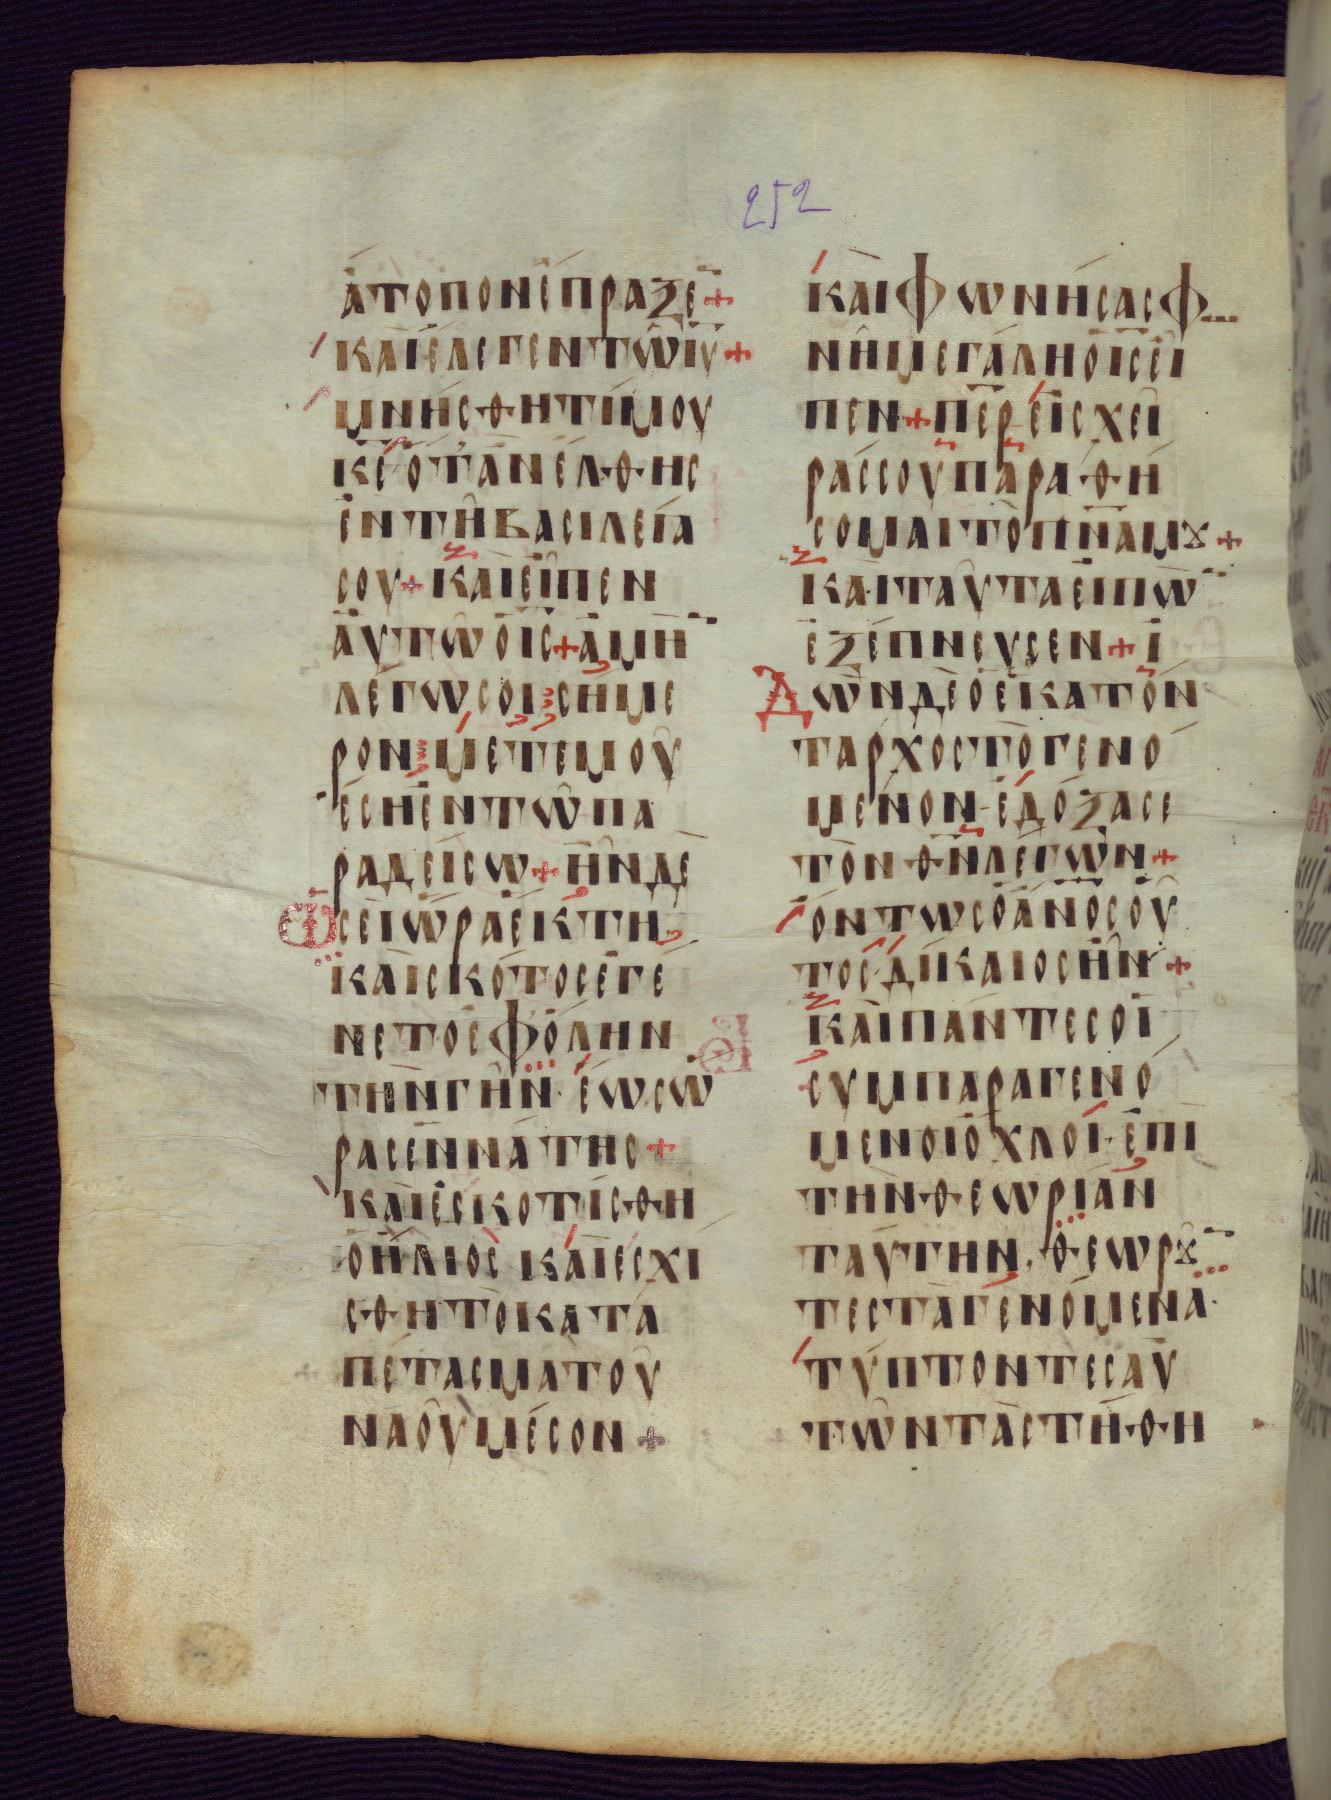 252
ἄτοπονἔπραξε̅+
καὶἔλεγεντῶι̅υ̅+
μνήσθητίμου
κ̅ε̅ὅτἂνἔλθης
ἐντῆβασιλεία
σου+καὶεἶπεν
αὐτῶὁι̅ς̅+ἀμὴ̅
λέγωσοισήμε
ρονμετεμοῦ
ἔσηἐντῶπα
ραδείσω+ἦνδὲ
ὡσεὶὥραἕκτη
καὶσκότοσἐγέ
νετοἐφόλην
τὴνγῆν·ἕωσὥ
ρασἐννάτησ+
καὶἐσκοτίσθη
ὁἥλιοσ καὶἐσχί
σθητὸκατα
πέτασματοῦ
ναοῦμέσον+
καὶφωνήσασφω
νῆμεγάληὁι̅ς̅εἶ
πεν+π̅ε̅ρ̅εἰσχεῖ
ράςσουπαραθή
σομαιτὸπν̅αμȣ+
καὶταῦταεἰπὼ̅
ἐξέπνευσεν+ἰ
δὼνδὲὁἑκατόν
ταρχοστὸγενό
μενον·ἐδόξασε
τὸνθ̅ν̅λέγων+
ὄντωσὁα̅ν̅ο̅σοὗ
τοσδίκαιοσἦν+
καὶπάντεσοἱ
συμπαραγενό
μενοιὄχλοι·ἐπὶ
τὴνθεωρίαν
ταύτην·θεωρȣ̅
τεστὰγενόμενα·
τύπτοντεσαὑ
τῶντὰστήθη